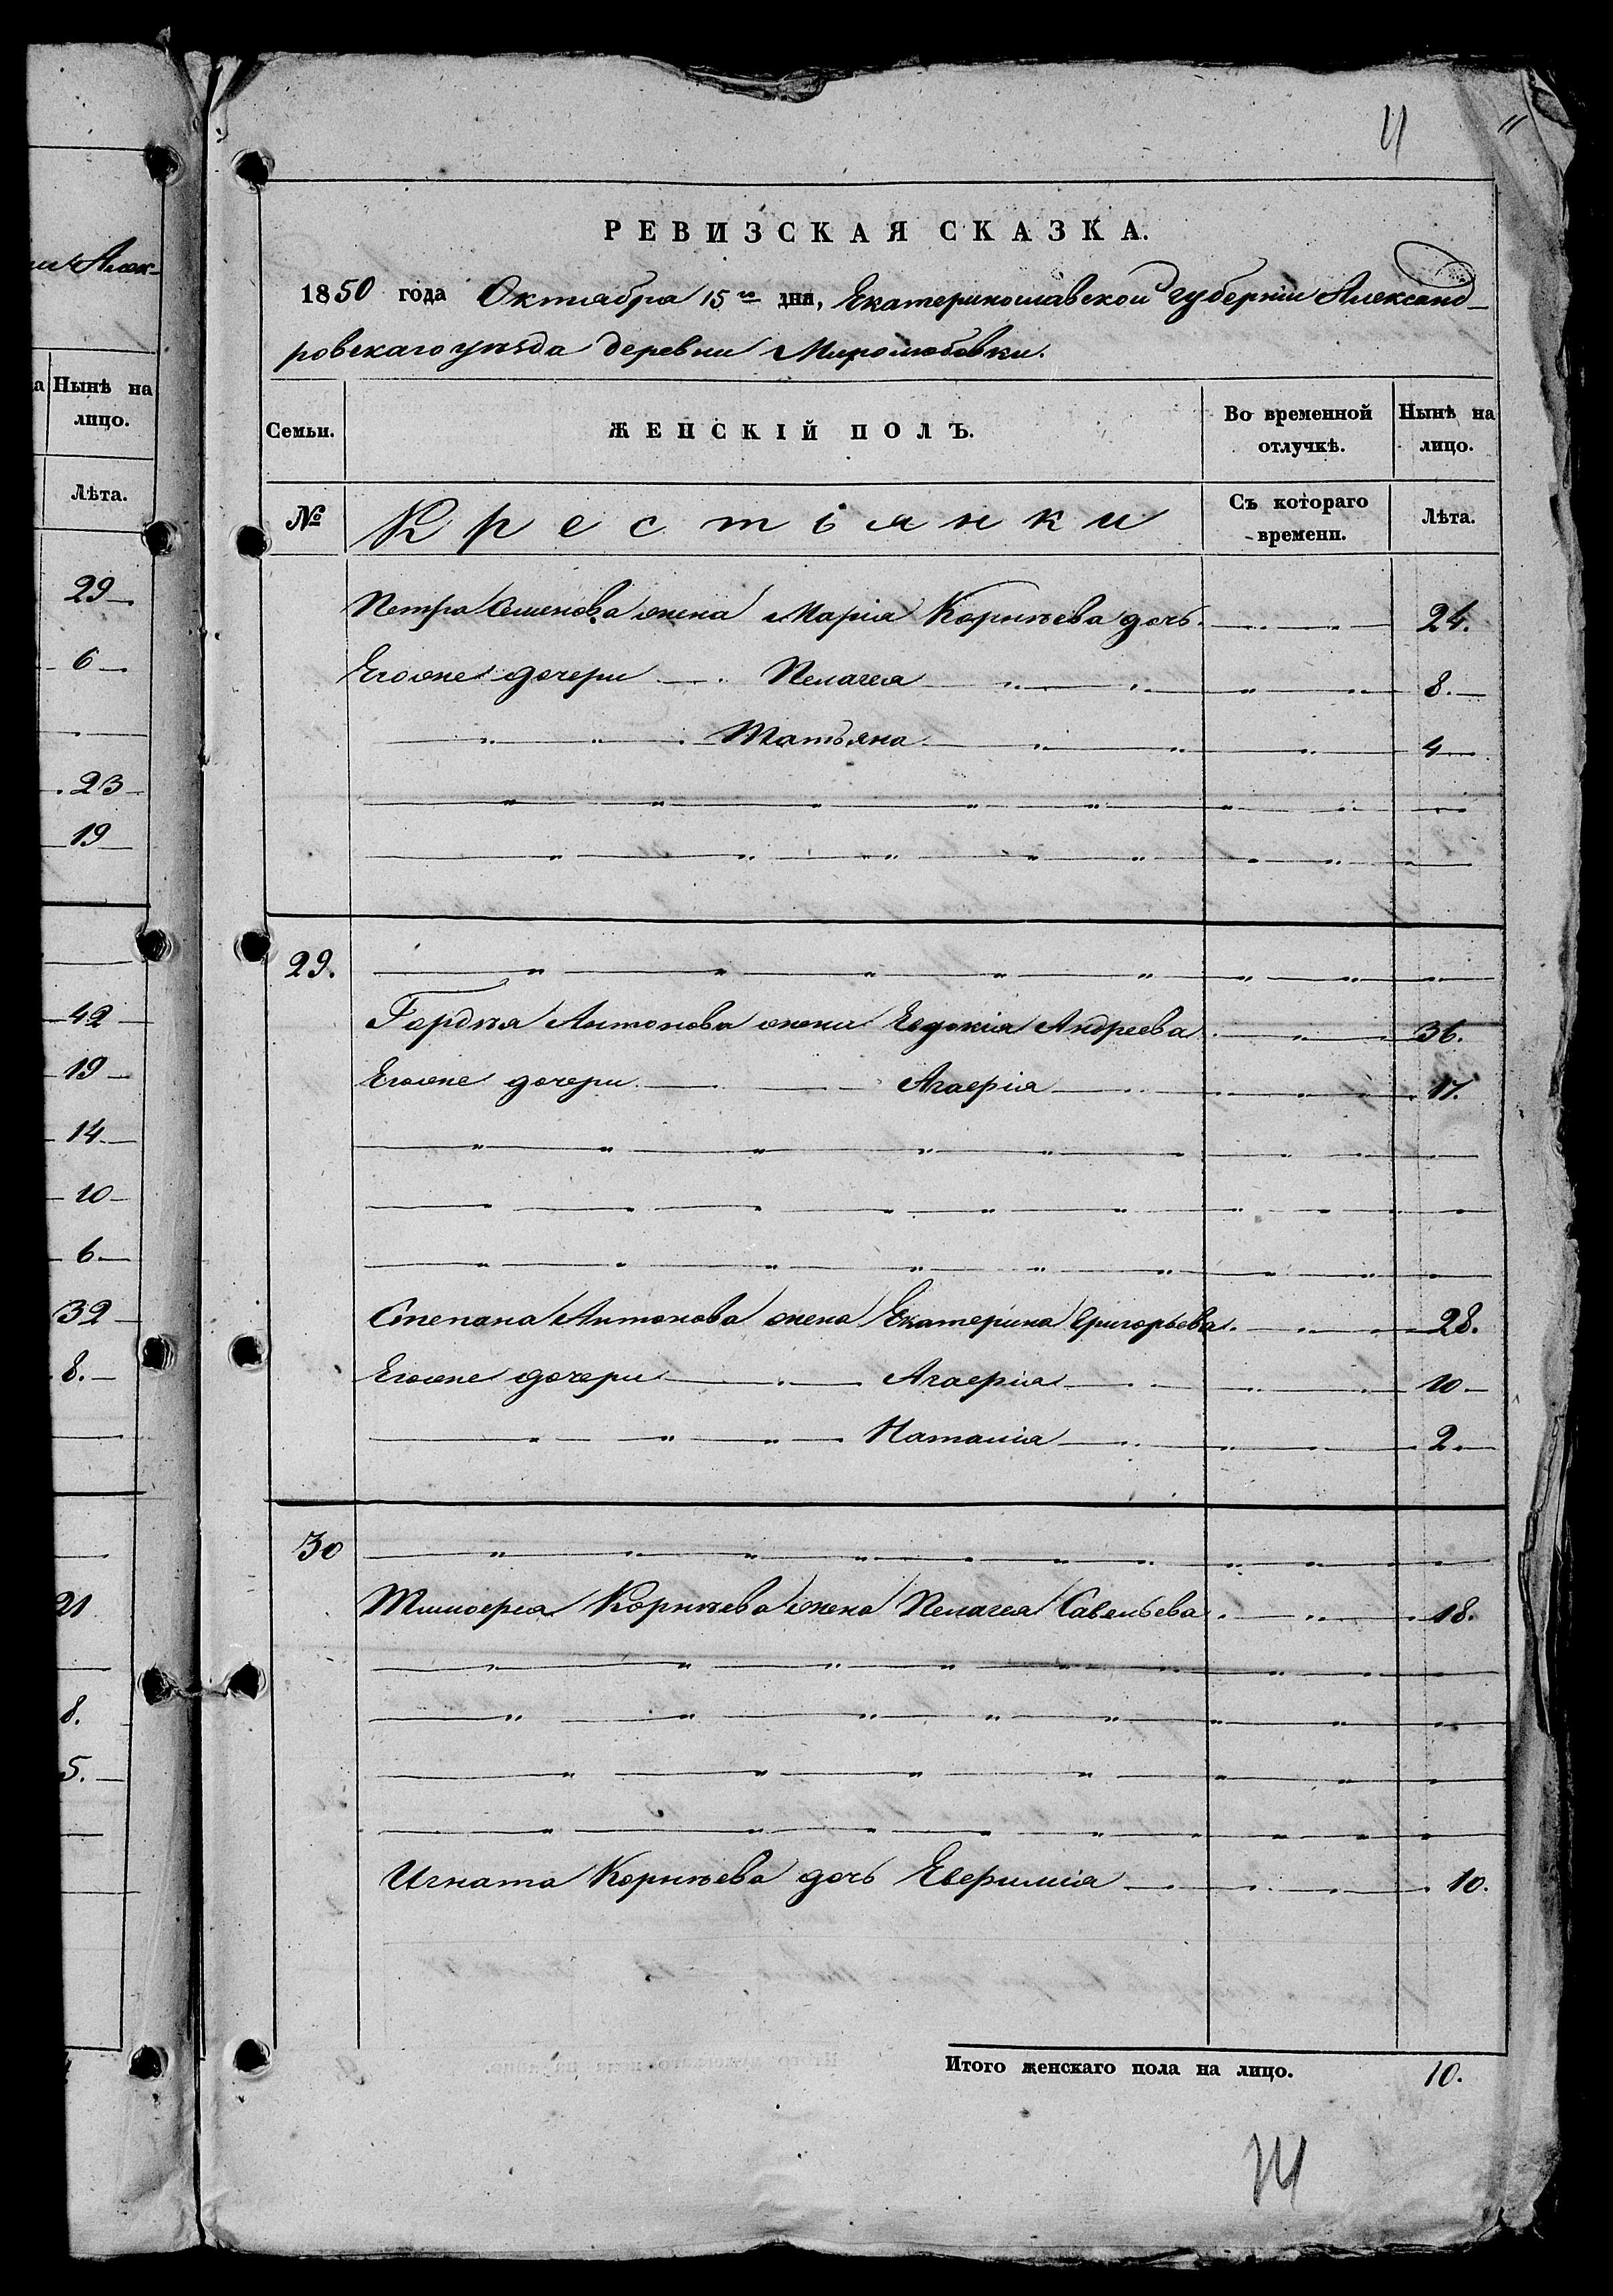 и Алек-
а Нынѣ на
лицо.
Лѣта.
29
6
23
19
42
19
14
10
6
32
8.
21
8.
5.
11
РЕВИЗСКАЯ СКАЗКА.
1850 года Октября 15го дня, Екатеринославской губерніи Александ-
ровскаго уѣзда деревни Миролюбовки.
Семьи. ЖЕНСКІЙ ПОЛЪ. Во временной отлучкѣ. Нынѣ на лицо.
№ Крестьянки Съ котораго времени. Лѣта.
Петра Семенова жена Марія Корнѣева дочь 24.
Егоже дочери Пелагея 8.
Татьяна 4
29.
Гордѣя Антонова жена Евдокія Андреева 36.
Егоже дочери Агафія 17.
Степана Антонова жена Екатерина Григорьева 28.
Егоже дочери Агафія 10
Наталія 2.
30
Тимофея Корнѣева жена Пелагея Савельева 18.
Игната Корнѣева дочь Евфимія 10.
Итого женскаго пола на лицо. 10.